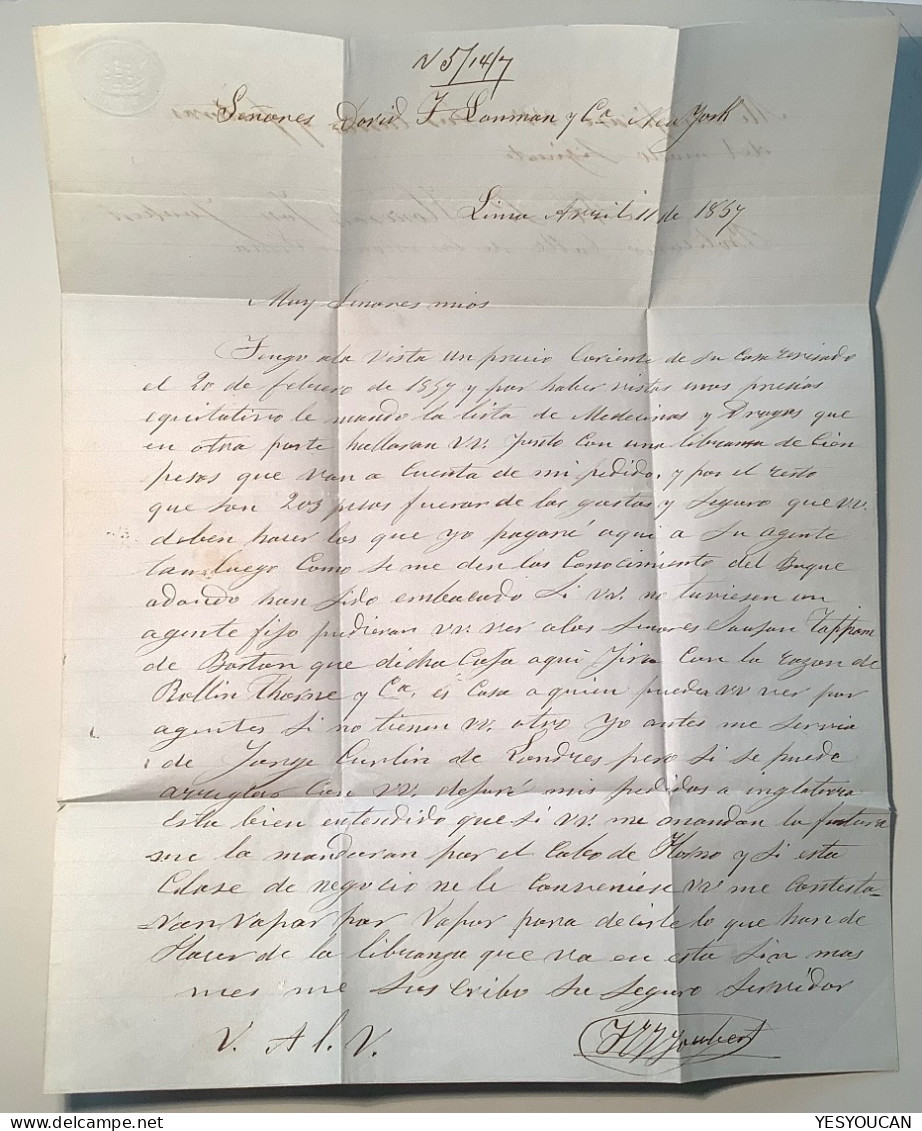 N 5/14/7
Señores David T Lanman y Ca New York
Lima Avril 11 de 1857
Muy Senores mios
Tengo ala vista un precio Coriente de su casa
el 20 de febrero de 1857 y por haber vistos unos presios
equitativo le mando la lista de Medecinas y Drogas que
en otra parte hallaran VV. Junto Con una libranza de Cien
pesos que van a Cuenta de mi pedido, y por el resto
que son 203 pesos fueran de los gastos y Seguro que VV.
deben hacer los que yo pagaré aqui a Su agente
tan luego Como se me den los Conocimiento del Buque
adondo han sido embalado Si VV. no tuviesen un
agente fijo pudieran VV. ver alos Senores Tappan
de Boston que dicha Casa aqui Jira Con la razon de
Rollin Thorne y Ca. es Casa aquien pueden VV ver por
agentes Si no tienen VV. otro Yo antes me Servia
de Jorge Curlin de Londres pero Si se puede
areglar Con VV. dejaré mis pedidos a inglaterra
Esta bien entendido que Si VV. me mandan la factura
me la mandaran por el Cabo de Horno y Si esta
Clase de negocio ne le Conveniese VV me Contesta-
ran Vapor por Vapor para decirle lo que han de
Hacer de la libranza que va en esta Sin mas
me Suscribo Su Seguro Servidor
V. A l. V.
Joubert
YESYOUCAN